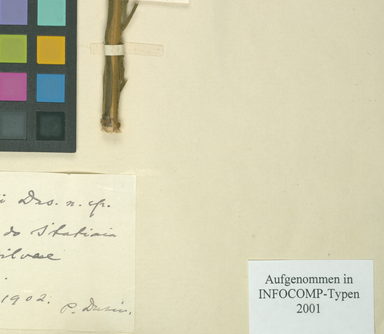 n. sp.
do Itatiaia
1902. P. Dusén.
Aufgenommen in
INFOCOMP-Typen
2001